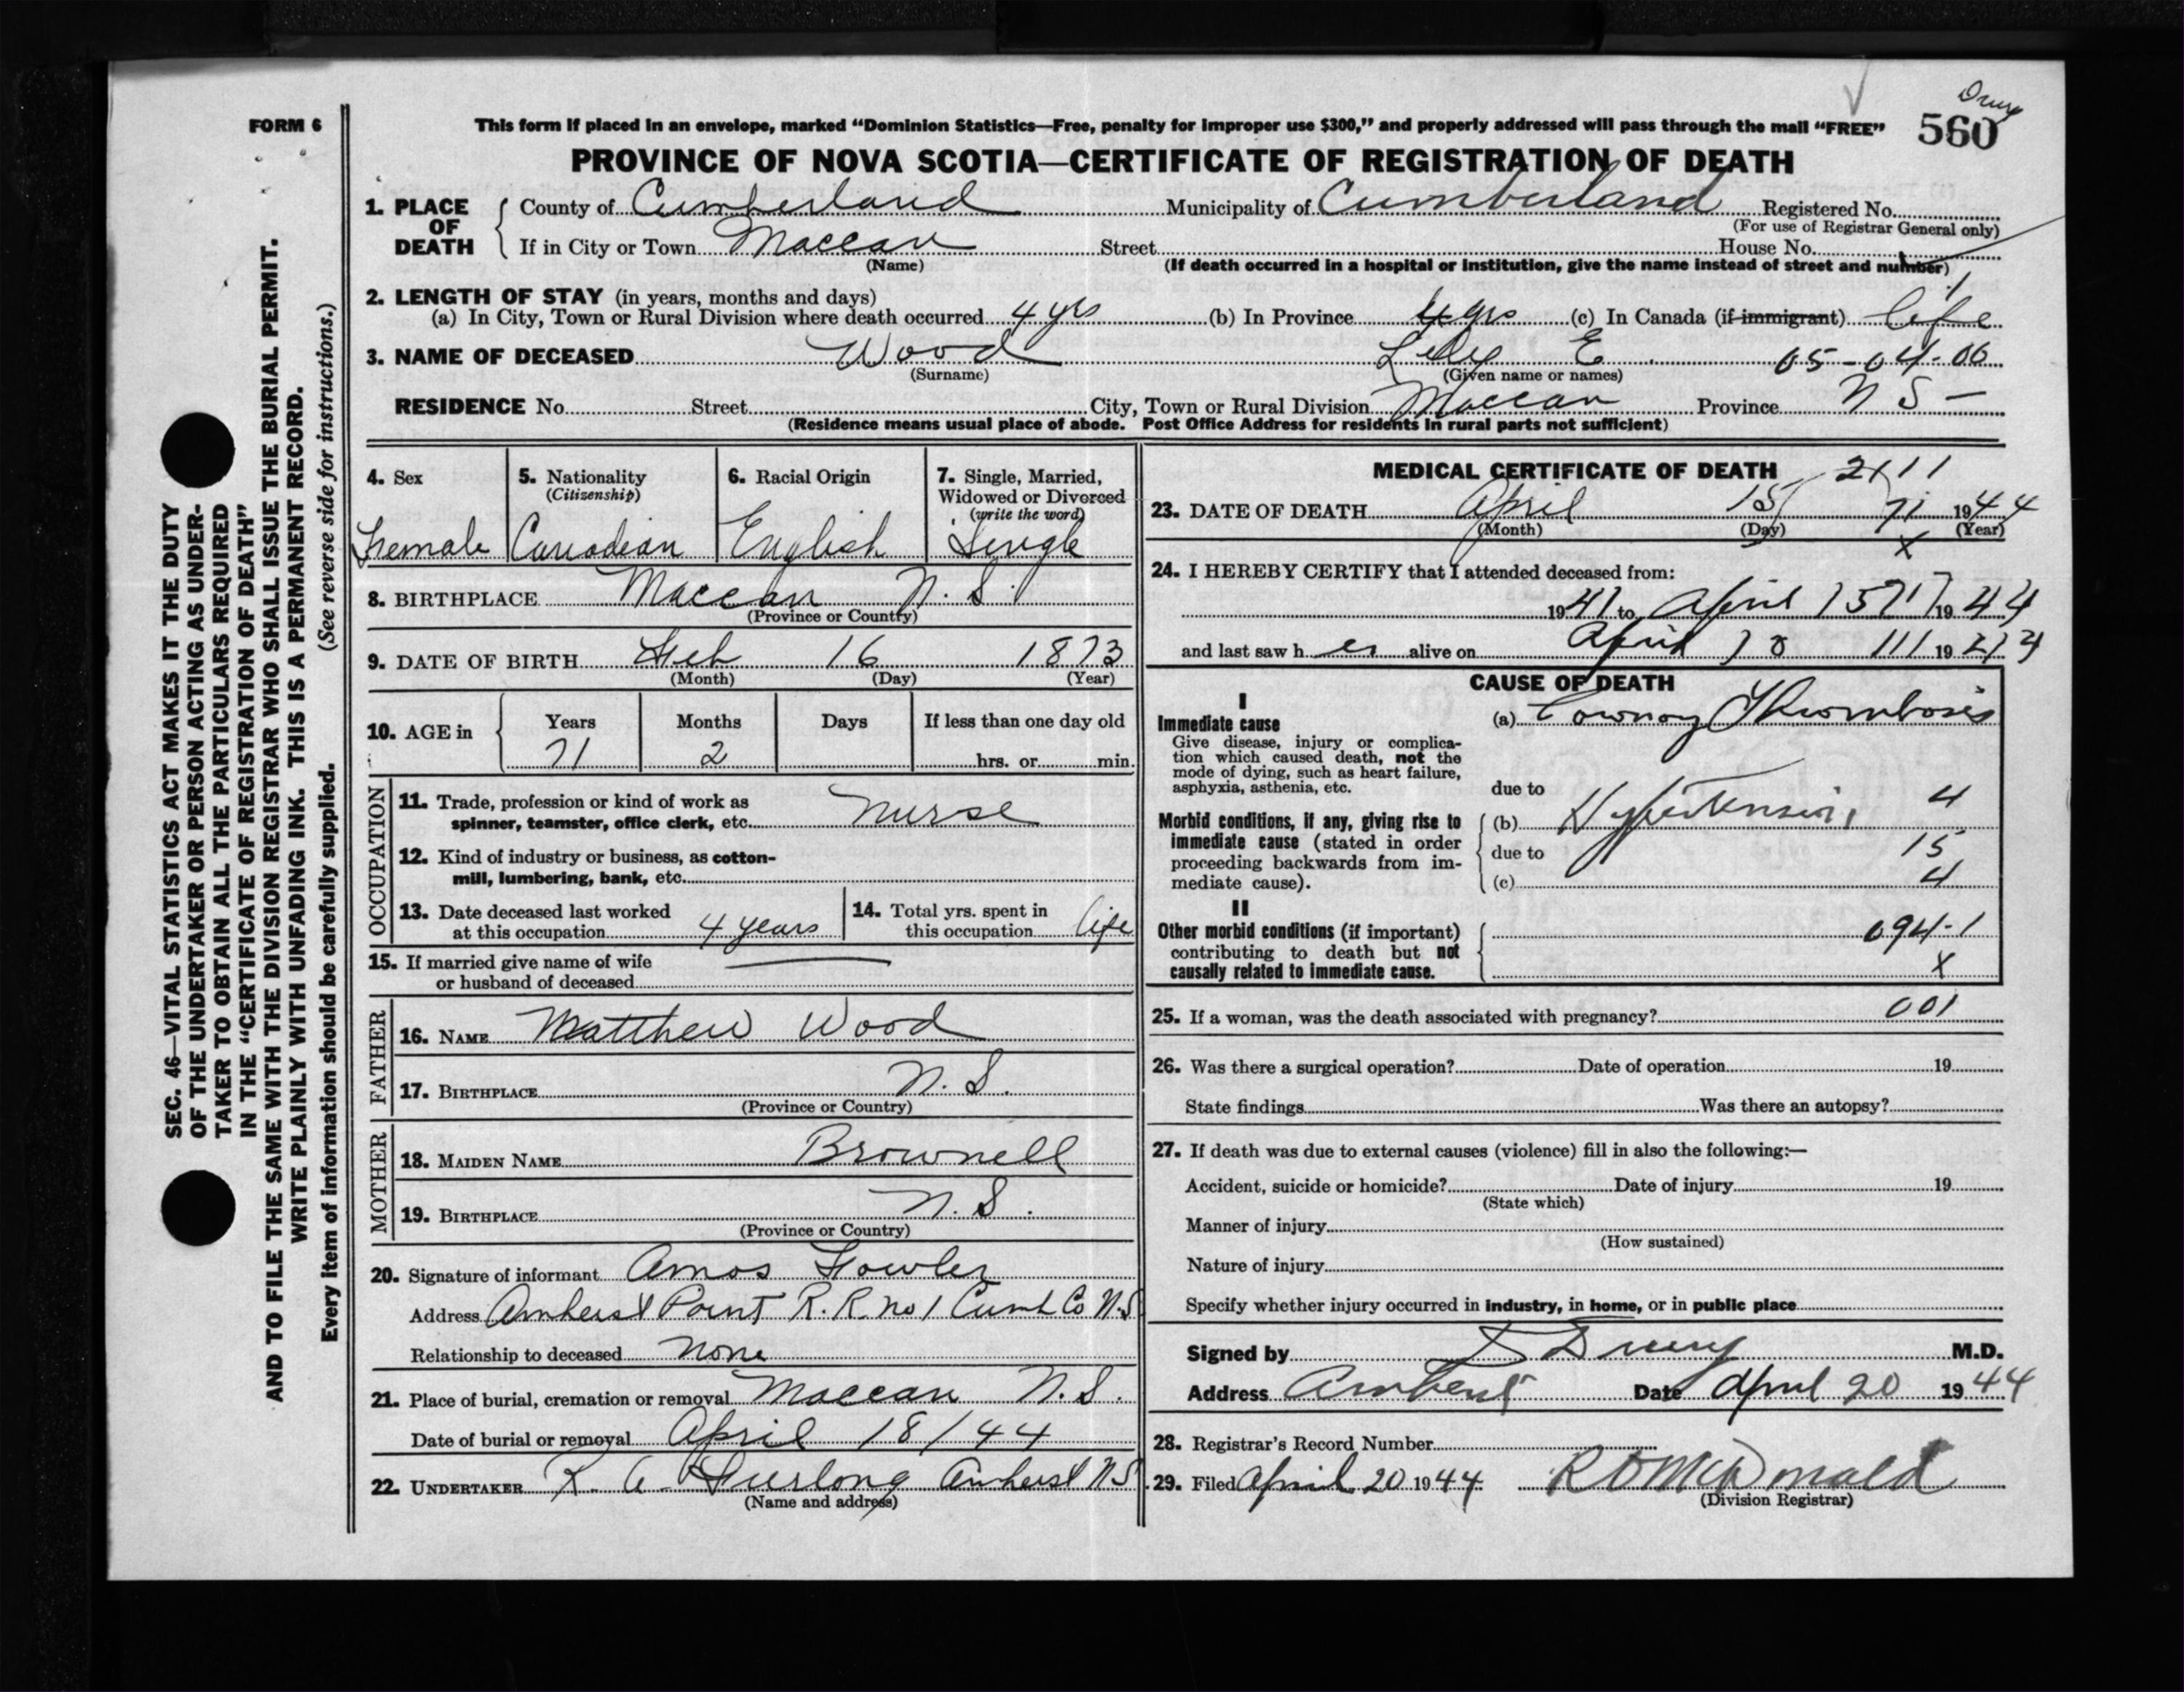 Drury
560
FORM 6
This form if placed in an envelope, marked “Dominion Statistics—Free, penalty for improper use $300,” and properly addressed will pass through the mail “FREE”
PROVINCE OF NOVA SCOTIA—CERTIFICATE OF REGISTRATION OF DEATH
1. PLACE OF DEATH County of Cumberland Municipality of Cumberland Registered No.
(For use of Registrar General only)
If in City or Town Maccan Street House No.
(Name) (If death occurred in a hospital or institution, give the name instead of street and number)
2. LENGTH OF STAY (in years, months and days)
(a) In City, Town or Rural Division where death occurred 4 yrs (b) In Province 4 yrs (c) In Canada (if immigrant) life
3. NAME OF DECEASED Wood E. 05-04-06
(Surname) (Given name or names)
RESIDENCE No. Street City, Town or Rural Division Maccan Province N S —
(Residence means usual place of abode. Post Office Address for residents in rural parts not sufficient)
4. Sex 5. Nationality 6. Racial Origin 7. Single, Married,
(Citizenship) Widowed or Divorced
(write the word)
Female Canadian English Single
8. BIRTHPLACE Maccan N. S.
(Province or Country)
9. DATE OF BIRTH Feb 16 1873
(Month) (Day) (Year)
10. AGE in Years Months Days If less than one day old
71 2 hrs. or min.
OCCUPATION
11. Trade, profession or kind of work as
spinner, teamster, office clerk, etc. Nurse
12. Kind of industry or business, as cotton-
mill, lumbering, bank, etc.
13. Date deceased last worked 14. Total yrs. spent in
at this occupation 4 years this occupation life
15. If married give name of wife
or husband of deceased
FATHER
16. NAME Matthew Wood
17. BIRTHPLACE N. S.
(Province or Country)
MOTHER
18. MAIDEN NAME Brownell
19. BIRTHPLACE N. S.
(Province or Country)
20. Signature of informant Amos Fowler
Address Amherst Point R. R. no 1 Cumb Co N.S
Relationship to deceased none
21. Place of burial, cremation or removal Maccan N. S.
Date of burial or removal April 18/44
22. UNDERTAKER R. A. Furlong Amherst N S
(Name and address)
MEDICAL CERTIFICATE OF DEATH 2111
23. DATE OF DEATH April 15 71 1944
(Month) (Day) (Year)
X
24. I HEREBY CERTIFY that I attended deceased from:
1941 to April 15 1944
and last saw her alive on April 1944
CAUSE OF DEATH
I
Immediate cause (a) Coronary Thrombosis
Give disease, injury or complica-
tion which caused death, not the
mode of dying, such as heart failure,
asphyxia, asthenia, etc. due to
4
Morbid conditions, if any, giving rise to (b) Hypertension
immediate cause (stated in order due to 15
proceeding backwards from im-
mediate cause). (c) 4
II
Other morbid conditions (if important) 094-1
contributing to death but not
causally related to immediate cause. X
25. If a woman, was the death associated with pregnancy? 001
26. Was there a surgical operation? Date of operation 19
State findings Was there an autopsy?
27. If death was due to external causes (violence) fill in also the following:—
Accident, suicide or homicide? Date of injury 19
(State which)
Manner of injury
(How sustained)
Nature of injury
Specify whether injury occurred in industry, in home, or in public place
Signed by D Drury M.D.
Address Amherst Date April 20 1944
28. Registrar's Record Number
29. Filed April 20 1944 McDonald
(Division Registrar)
SEC. 46—VITAL STATISTICS ACT MAKES IT THE DUTY
OF THE UNDERTAKER OR PERSON ACTING AS UNDER-
TAKER TO OBTAIN ALL THE PARTICULARS REQUIRED
IN THE “CERTIFICATE OF REGISTRATION OF DEATH”
AND TO FILE THE SAME WITH THE DIVISION REGISTRAR WHO SHALL ISSUE THE BURIAL PERMIT.
WRITE PLAINLY WITH UNFADING INK. THIS IS A PERMANENT RECORD.
Every item of information should be carefully supplied. (See reverse side for instructions.)